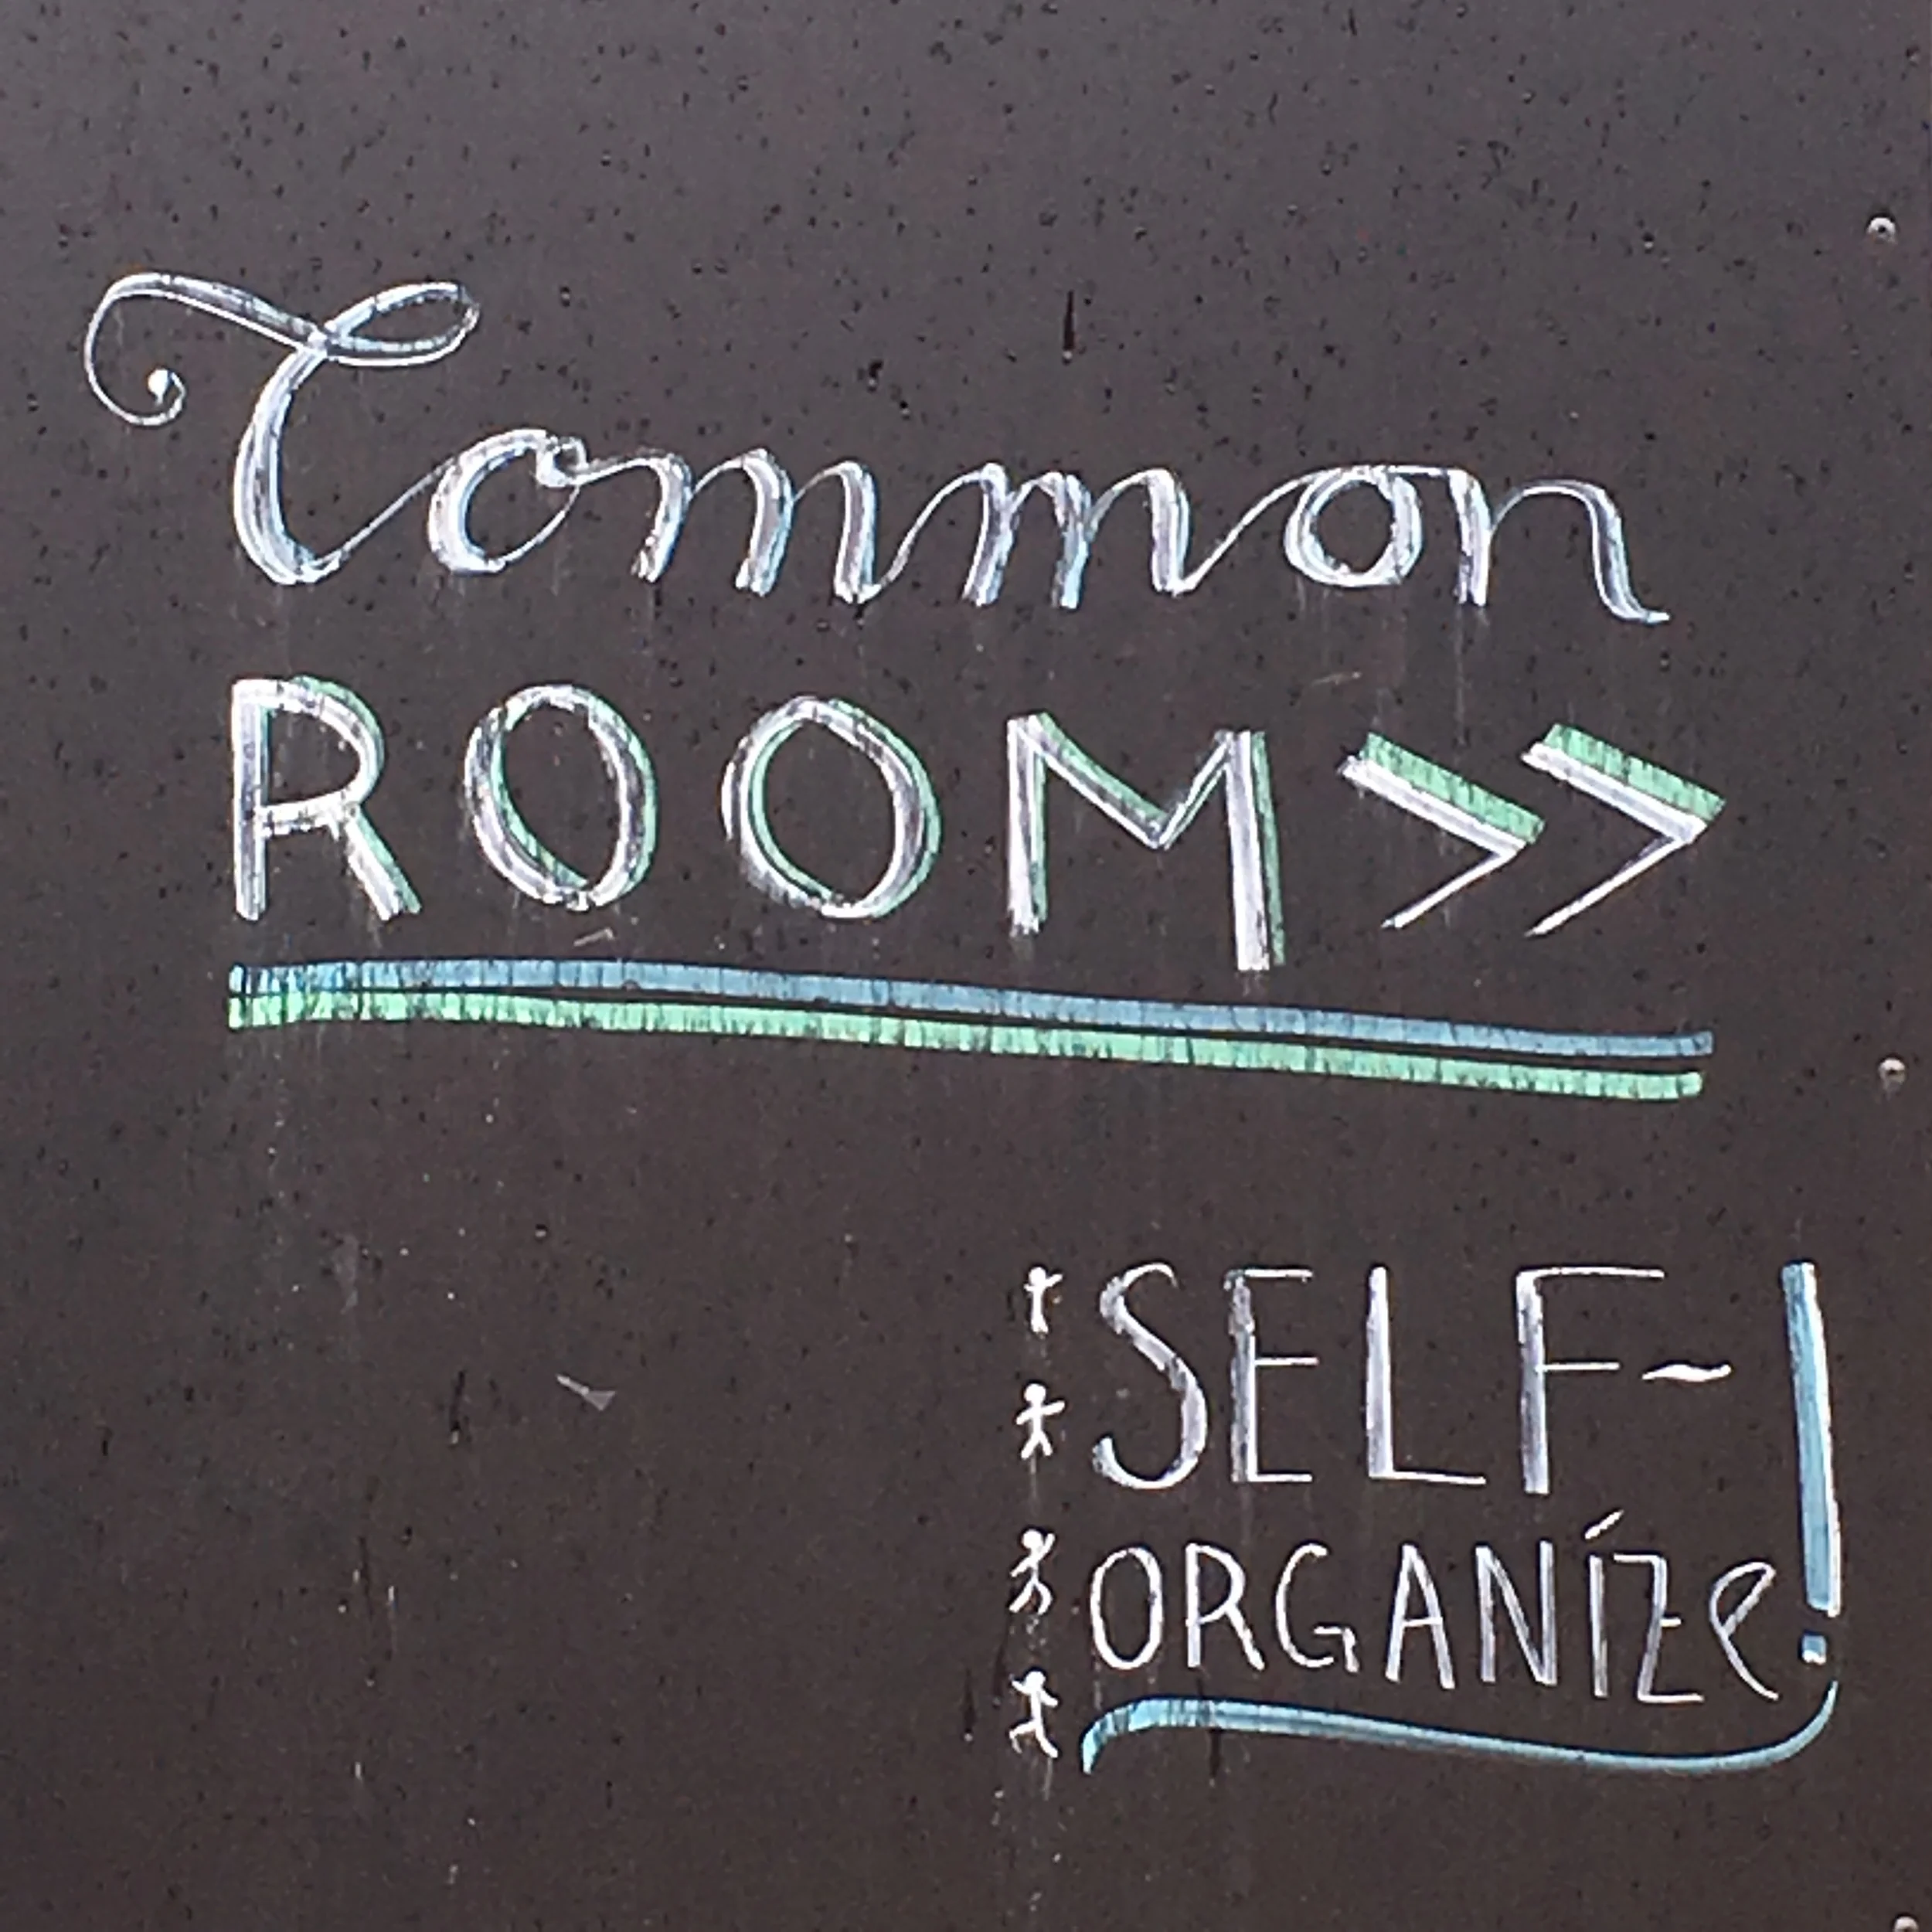 Common
ROOM >>
SELF-
ORGANíZe!